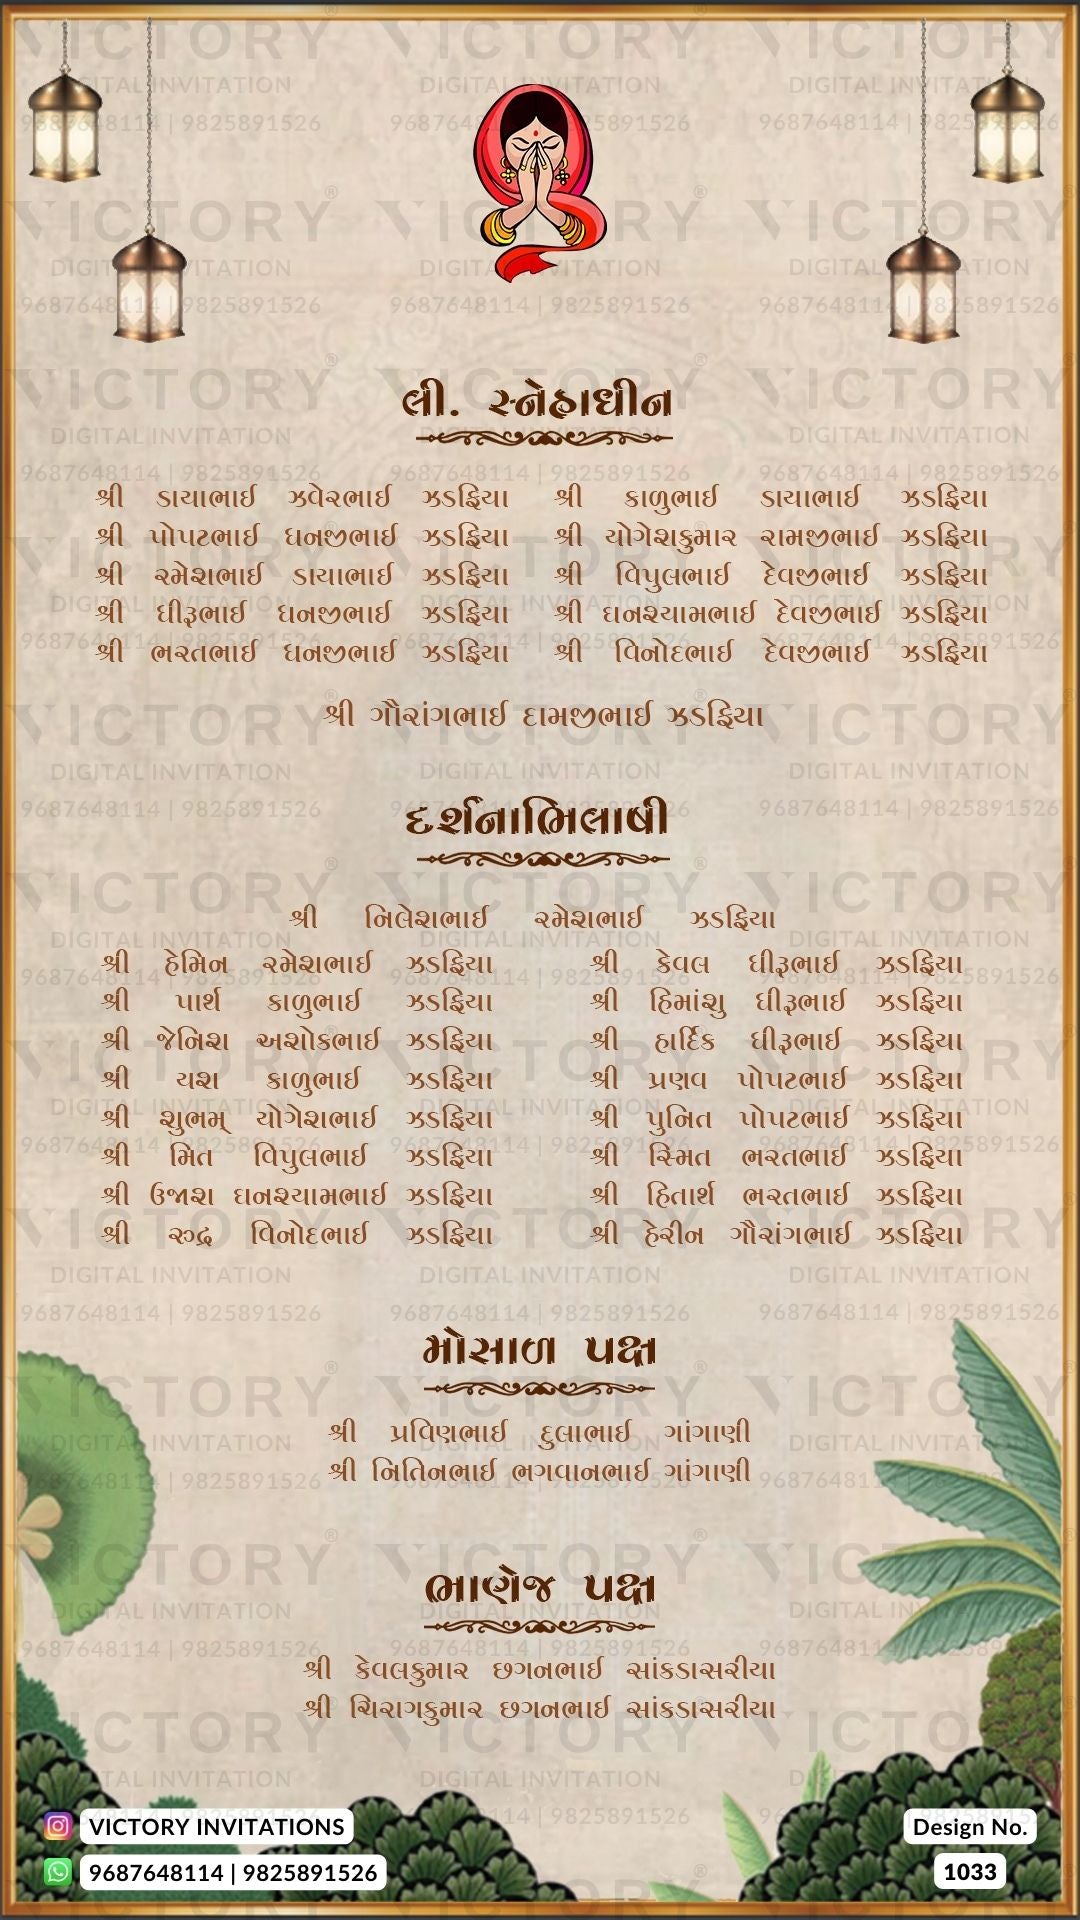 લી. સ્નેહાધીન
શ્રી ડાયાભાઈ ઝવેરભાઈ ઝડફિયા શ્રી કાળુભાઈ ડાયાભાઈ ઝડફિયા
શ્રી પોપટભાઈ ઘનજીભાઈ ઝડફિયા શ્રી યોગેશકુમાર રામજીભાઈ ઝડફિયા
શ્રી રમેશભાઈ ડાયાભાઈ ઝડફિયા શ્રી વિપુલભાઈ દેવજીભાઈ ઝડફિયા
શ્રી ધીરૂભાઈ ધનજીભાઈ ઝડફિયા શ્રી ઘનશ્યામભાઈ દેવજીભાઈ ઝડફિયા
શ્રી ભરતભાઈ ઘનજીભાઈ ઝડફિયા શ્રી વિનોદભાઈ દેવજીભાઈ ઝડફિયા
શ્રી ગૌરાંગભાઈ દામજીભાઈ ઝડફિયા
દર્શનાભિલાષી
શ્રી નિલેશભાઈ રમેશભાઈ ઝડફિયા
શ્રી હેમિન રમેશભાઈ ઝડફિયા શ્રી કેવલ ધીરૂભાઈ ઝડફિયા
શ્રી પાર્થ કાળુભાઈ ઝડફિયા શ્રી હિમાંશુ ધીરૂભાઈ ઝડફિયા
શ્રી જેનિશ અશોકભાઈ ઝડફિયા શ્રી હાર્દિક ધીરૂભાઈ ઝડફિયા
શ્રી યશ કાળુભાઈ ઝડફિયા શ્રી પ્રણવ પોપટભાઈ ઝડફિયા
શ્રી શુભમ્ યોગેશભાઈ ઝડફિયા શ્રી પુનિત પોપટભાઈ ઝડફિયા
શ્રી મિત વિપુલભાઈ ઝડફિયા શ્રી સ્મિત ભરતભાઈ ઝડફિયા
શ્રી ઉજાશ ઘનશ્યામભાઈ ઝડફિયા શ્રી હિતાર્થ ભરતભાઈ ઝડફિયા
શ્રી રુદ્ર વિનોદભાઈ ઝડફિયા શ્રી હેરીન ગૌરાંગભાઈ ઝડફિયા
મોસાળ પક્ષ
શ્રી પ્રવિણભાઈ દુલાભાઈ ગાંગાણી
શ્રી નિતિનભાઈ ભગવાનભાઈ ગાંગાણી
ભાણેજ પક્ષ
શ્રી કેવલકુમાર છગનભાઈ સાંકડાસરીયા
શ્રી ચિરાગકુમાર છગનભાઈ સાંકડાસરીયા
VICTORY INVITATIONS Design No.
9687648114 | 9825891526 1033
VICTORY
DIGITAL INVITATION
9687648114 | 9825891526